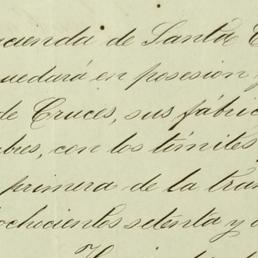 cienda de Santa
uedará en posesion
de Cruces, sus fábric
bres, con los límites
primera de la tra
ochocientos setenta y